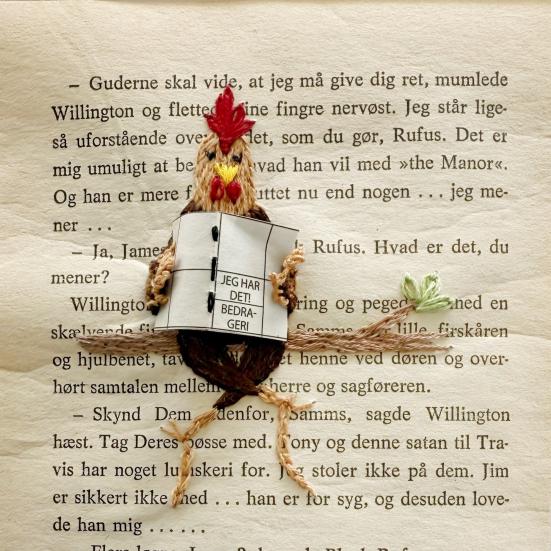 – Guderne skal vide, at jeg må give dig ret, mumlede
Willington og flettede sine fingre nervøst. Jeg står lige-
så uforstående ove det, som du gør, Rufus. Det er
mig umuligt at be vad han vil med »the Manor«.
Og han er mere f uttet nu end nogen . . . jeg me-
ner . . .
– Ja, James Rufus. Hvad er det, du
mener?
JEG HAR
DET!
BEDRA-
GERI
Willingto ring og peged med en
skælvende fi Samms lille, firskåren
og hjulbenet, tav et henne ved døren og over-
hørt samtalen mellem herre og sagføreren.
– Skynd Dem denfor, Samms, sagde Willington
hæst. Tag Deres bøsse med. Tony og denne satan til Tra-
vis har noget luskeri for. Jeg stoler ikke på dem. Jim
er sikkert ikke med . . . han er for syg, og desuden love-
de han mig . . . . . .